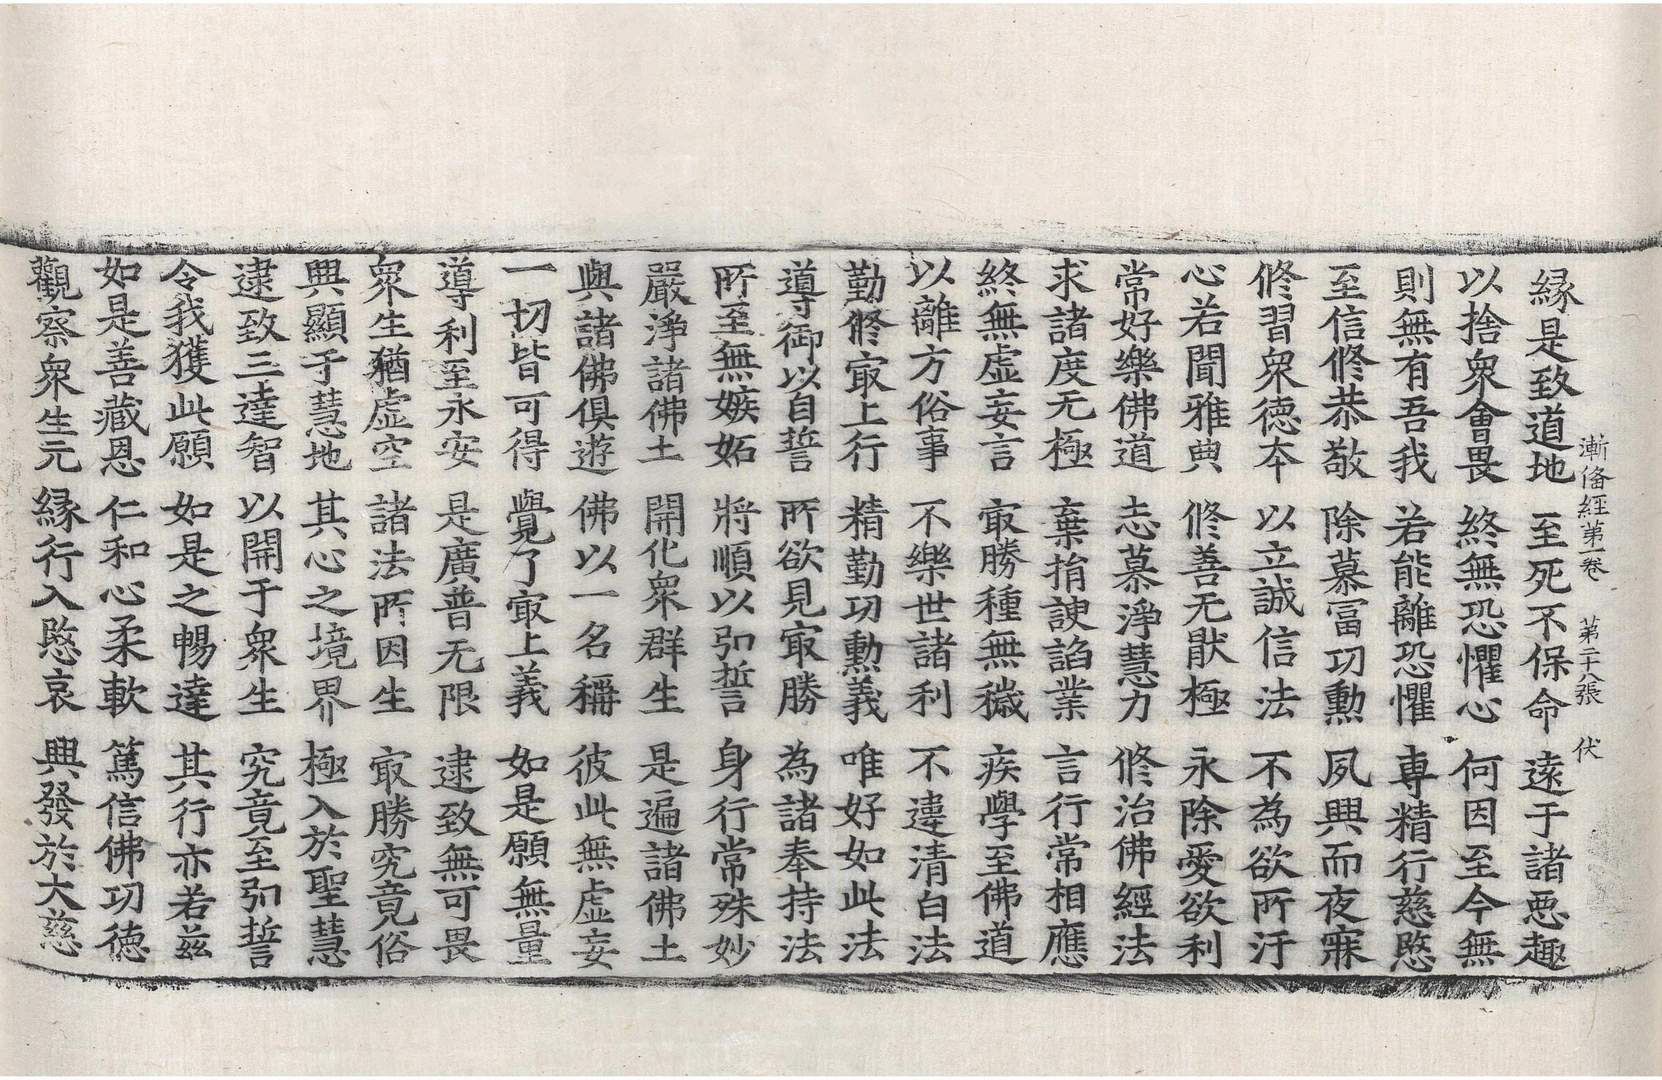 漸俻經第一卷　第二十八張　伏
縁是致道地　至死不保命　遠于諸惡趣
以捨衆會畏　終無恐懼心　何因至今無
則無有吾我　若能離恐懼　専精行慈愍
至信修恭敬　除慕冨功勲　夙興而夜寐
修習衆徳夲　以立誠信法　不為欲所汙
心若聞雅典　修善无猒極　永除愛欲利
常好樂佛道　志慕淨慧力　修治佛經法
求諸度无極　棄捐諛諂業　言行常相應
終無虚妄言　㝡勝種無穢　疾學至佛道
以離方俗事　不樂世諸利　不違清白法
勤修㝡上行　精勤功勲義　唯好如此法
導御以自誓　所欲見㝡勝　為諸奉持法
所至無嫉妬　將順以弘誓　身行常殊妙
嚴淨諸佛土　開化衆群生　是遍諸佛土
與諸佛俱遊　佛以一名稱　彼此無虚妄
一切皆可得　覺了㝡上義　如是願無量
導利至永安　是廣普无限　逮致無可畏
衆生猶虚空　諸法所因生　㝡勝究竟俗
興顯于慧地　其心之境界　極入於聖慧
逮致三達智　以開于衆生　究竟至弘誓
令我獲此願　如是之暢達　其行亦若茲
如是善藏恩　仁和心柔軟　篤信佛功徳
觀察衆生元　縁行入愍哀　興發於大慈